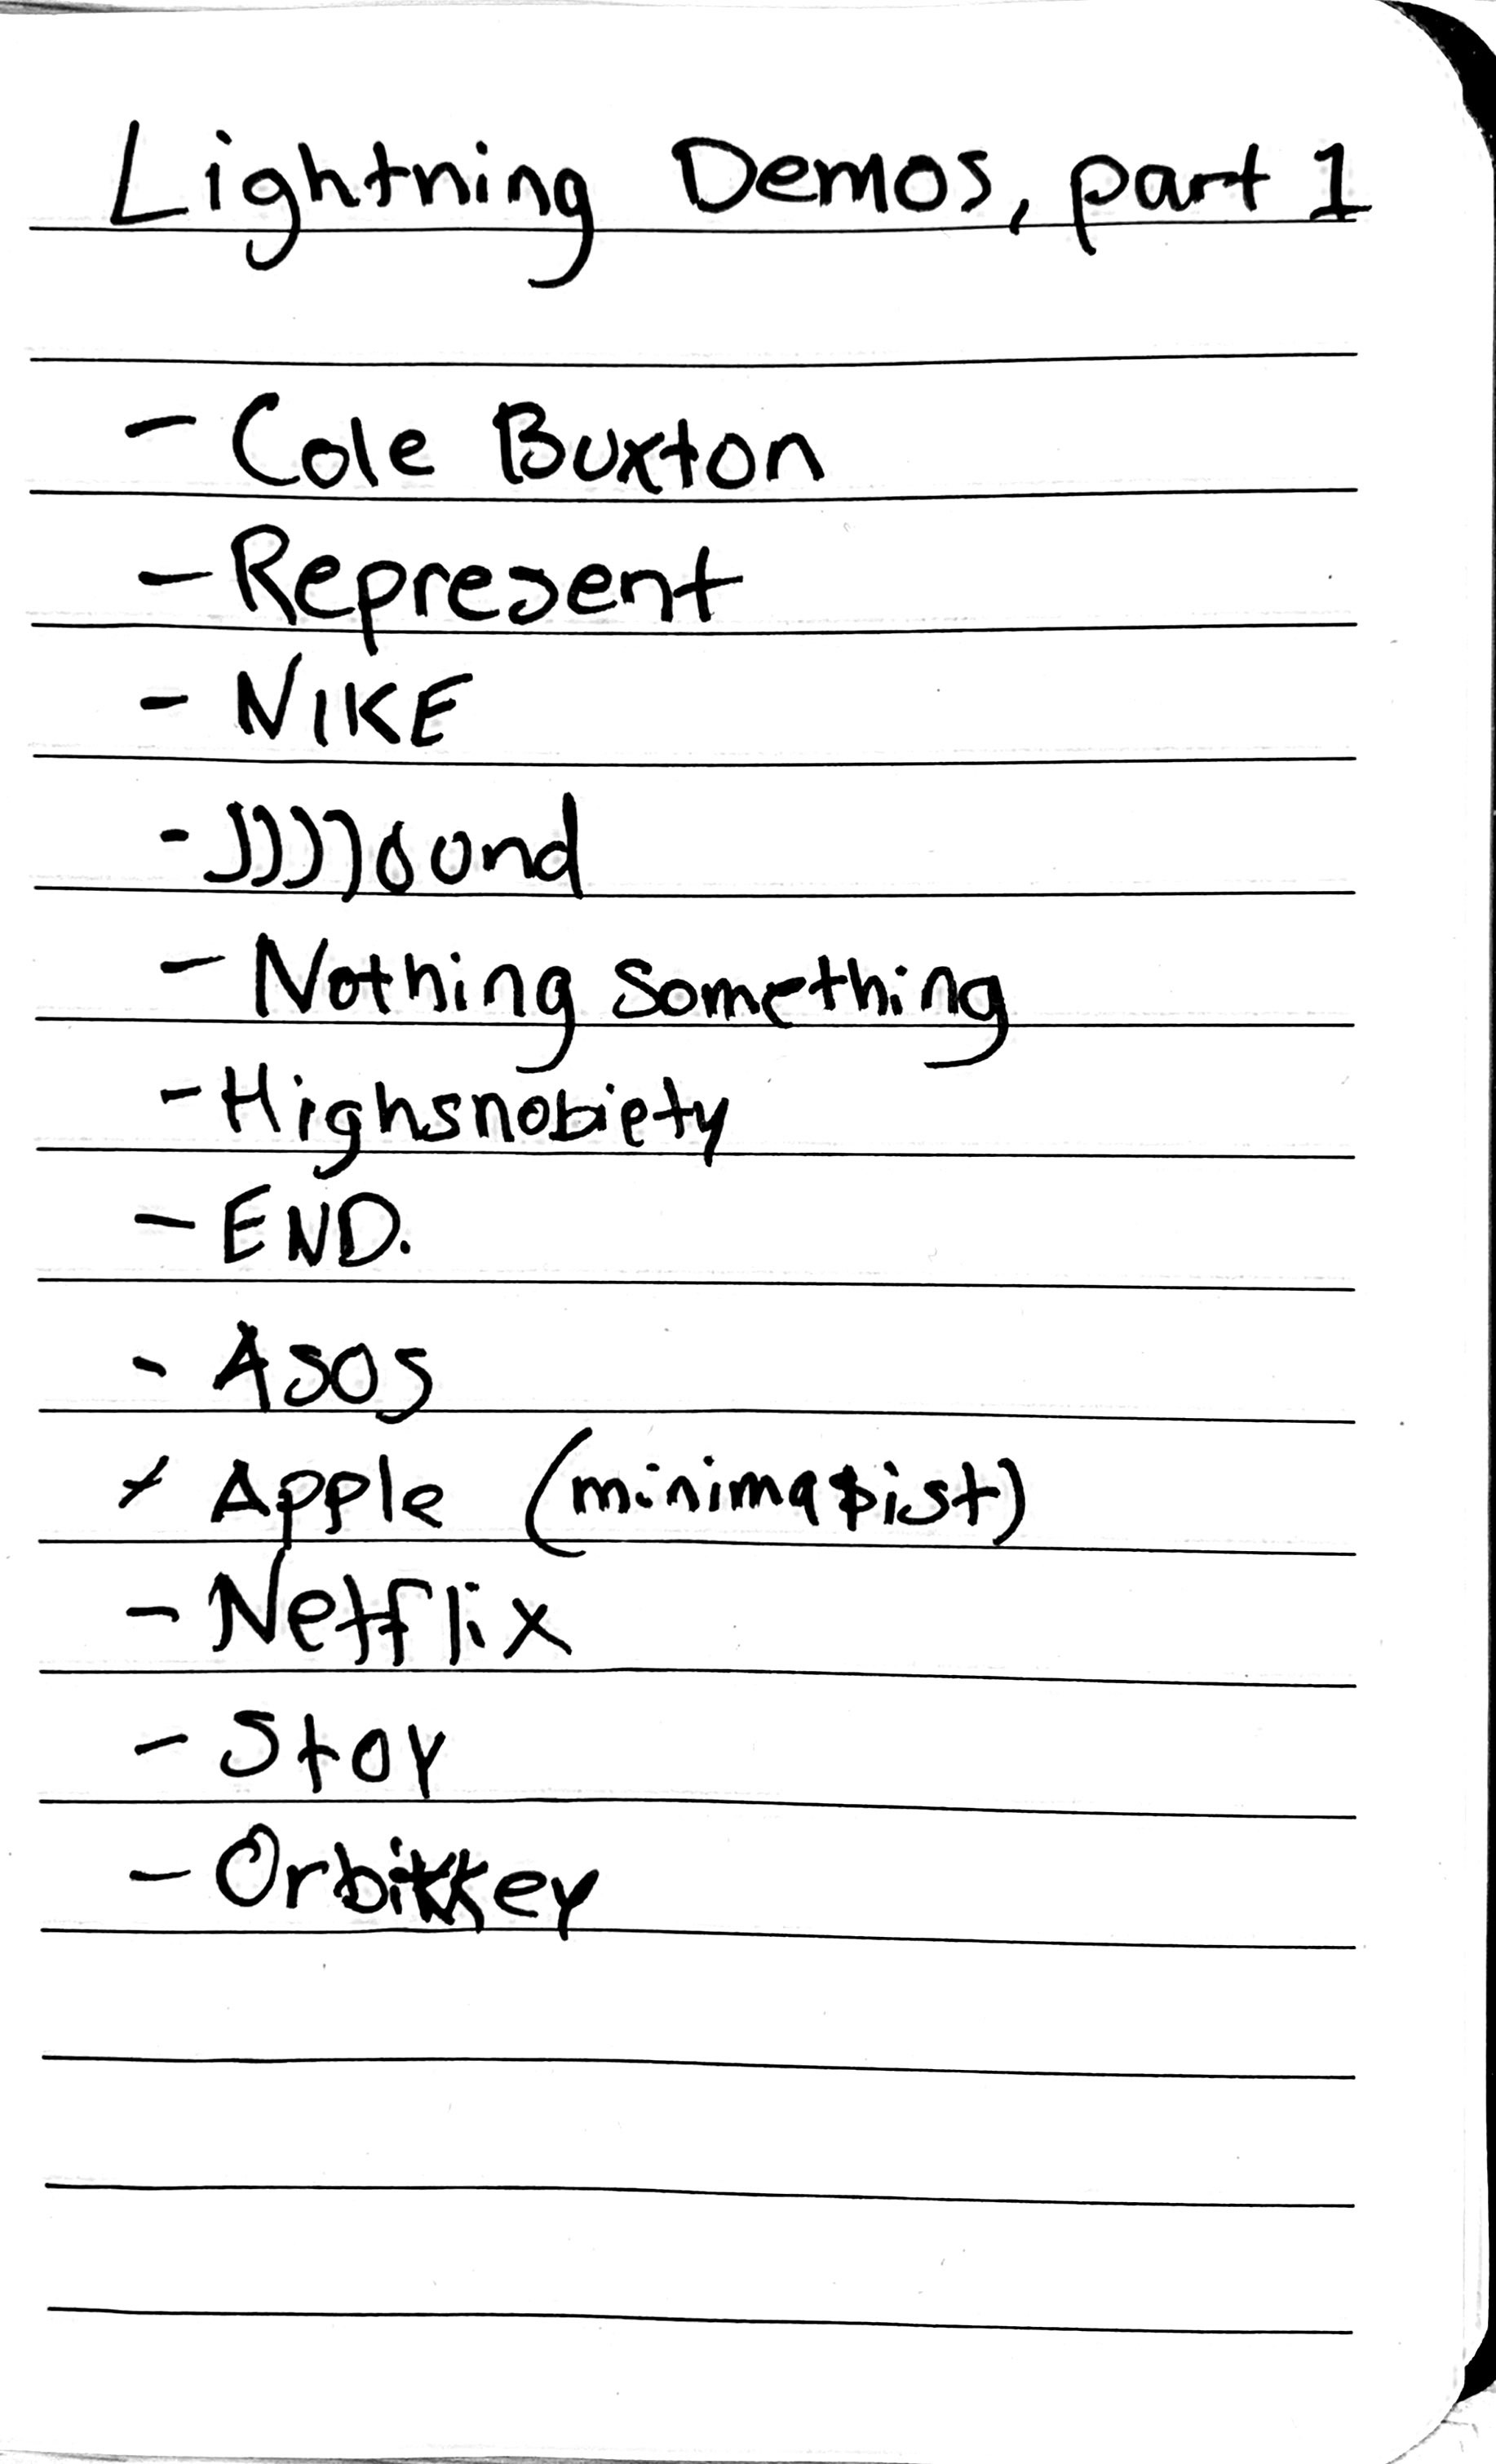 Lightning Demos, part 1
- Cole Buxton
- Represent
- NIKE
- JJJJound
- Nothing something
- Highsnobiety
- END.
- Asos
- Apple (minimalist)
- Netflix
- Stay
- Orbitkey